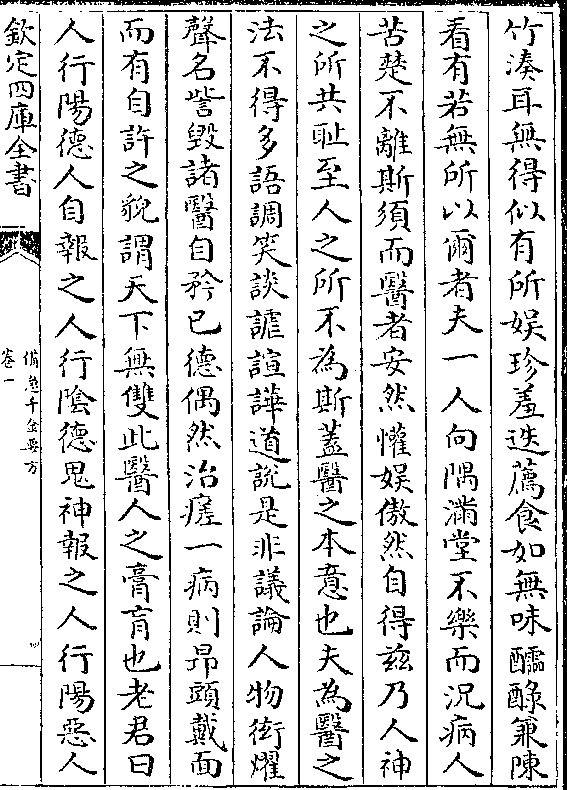 竹湊耳無得似有所娱珍羞迭薦食如無味醽醁兼陳
看有若無所以爾者夫一人向隅滿堂不樂而況病人
苦楚不離斯須而醫者安然懽娱傲然自得兹乃人神
之所共恥至人之所不為斯蓋醫之本意也夫為醫之
法不得多語調笑談謔諠譁道說是非議論人物衒燿
聲名訾毀諸醫自矜已德偶然治瘥一病則昂頭戴面
而有自許之貌謂天下無雙此醫人之膏肓也老君曰
人行陽德人自報之人行隂德鬼神報之人行陽惡人
欽定四庫全書
備急千金要方
卷一